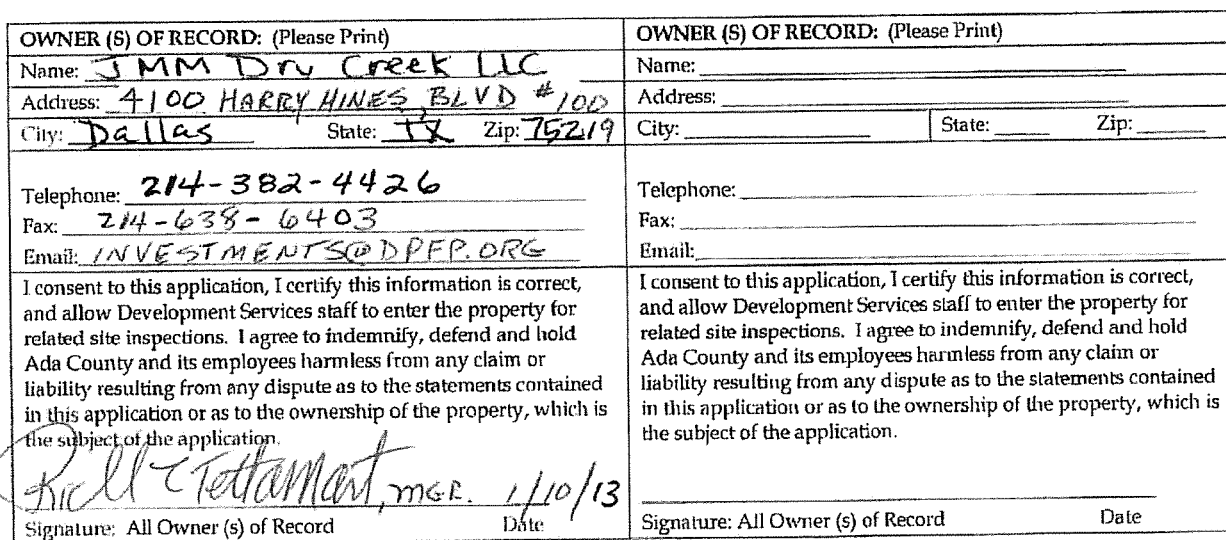 OWNER (S) OF RECORD: (Please Print)
Name: JMM Dry Creek LLC
Address: 4100 HARRY HINES BLVD #100
City: Dallas State: TX Zip: 75219
Telephone: 214-382-4426
Fax: 214-638-6403
Email: INVESTMENTS@DPFP.ORG
I consent to this application, I certify this information is correct,
and allow Development Services staff to enter the property for
related site inspections. I agree to indemnify, defend and hold
Ada County and its employees harmless from any claim or
liability resulting from any dispute as to the statements contained
in this application or as to the ownership of the property, which is
the subject of the application.
MGR. 1/10/13
Signature: All Owner (s) of Record Date
OWNER (S) OF RECORD: (Please Print)
Name:
Address:
City: State: Zip:
Telephone:
Fax:
Email:
I consent to this application, I certify this information is correct,
and allow Development Services staff to enter the property for
related site inspections. I agree to indemnify, defend and hold
Ada County and its employees harmless from any claim or
liability resulting from any dispute as to the statements contained
in this application or as to the ownership of the property, which is
the subject of the application.
Signature: All Owner (s) of Record Date